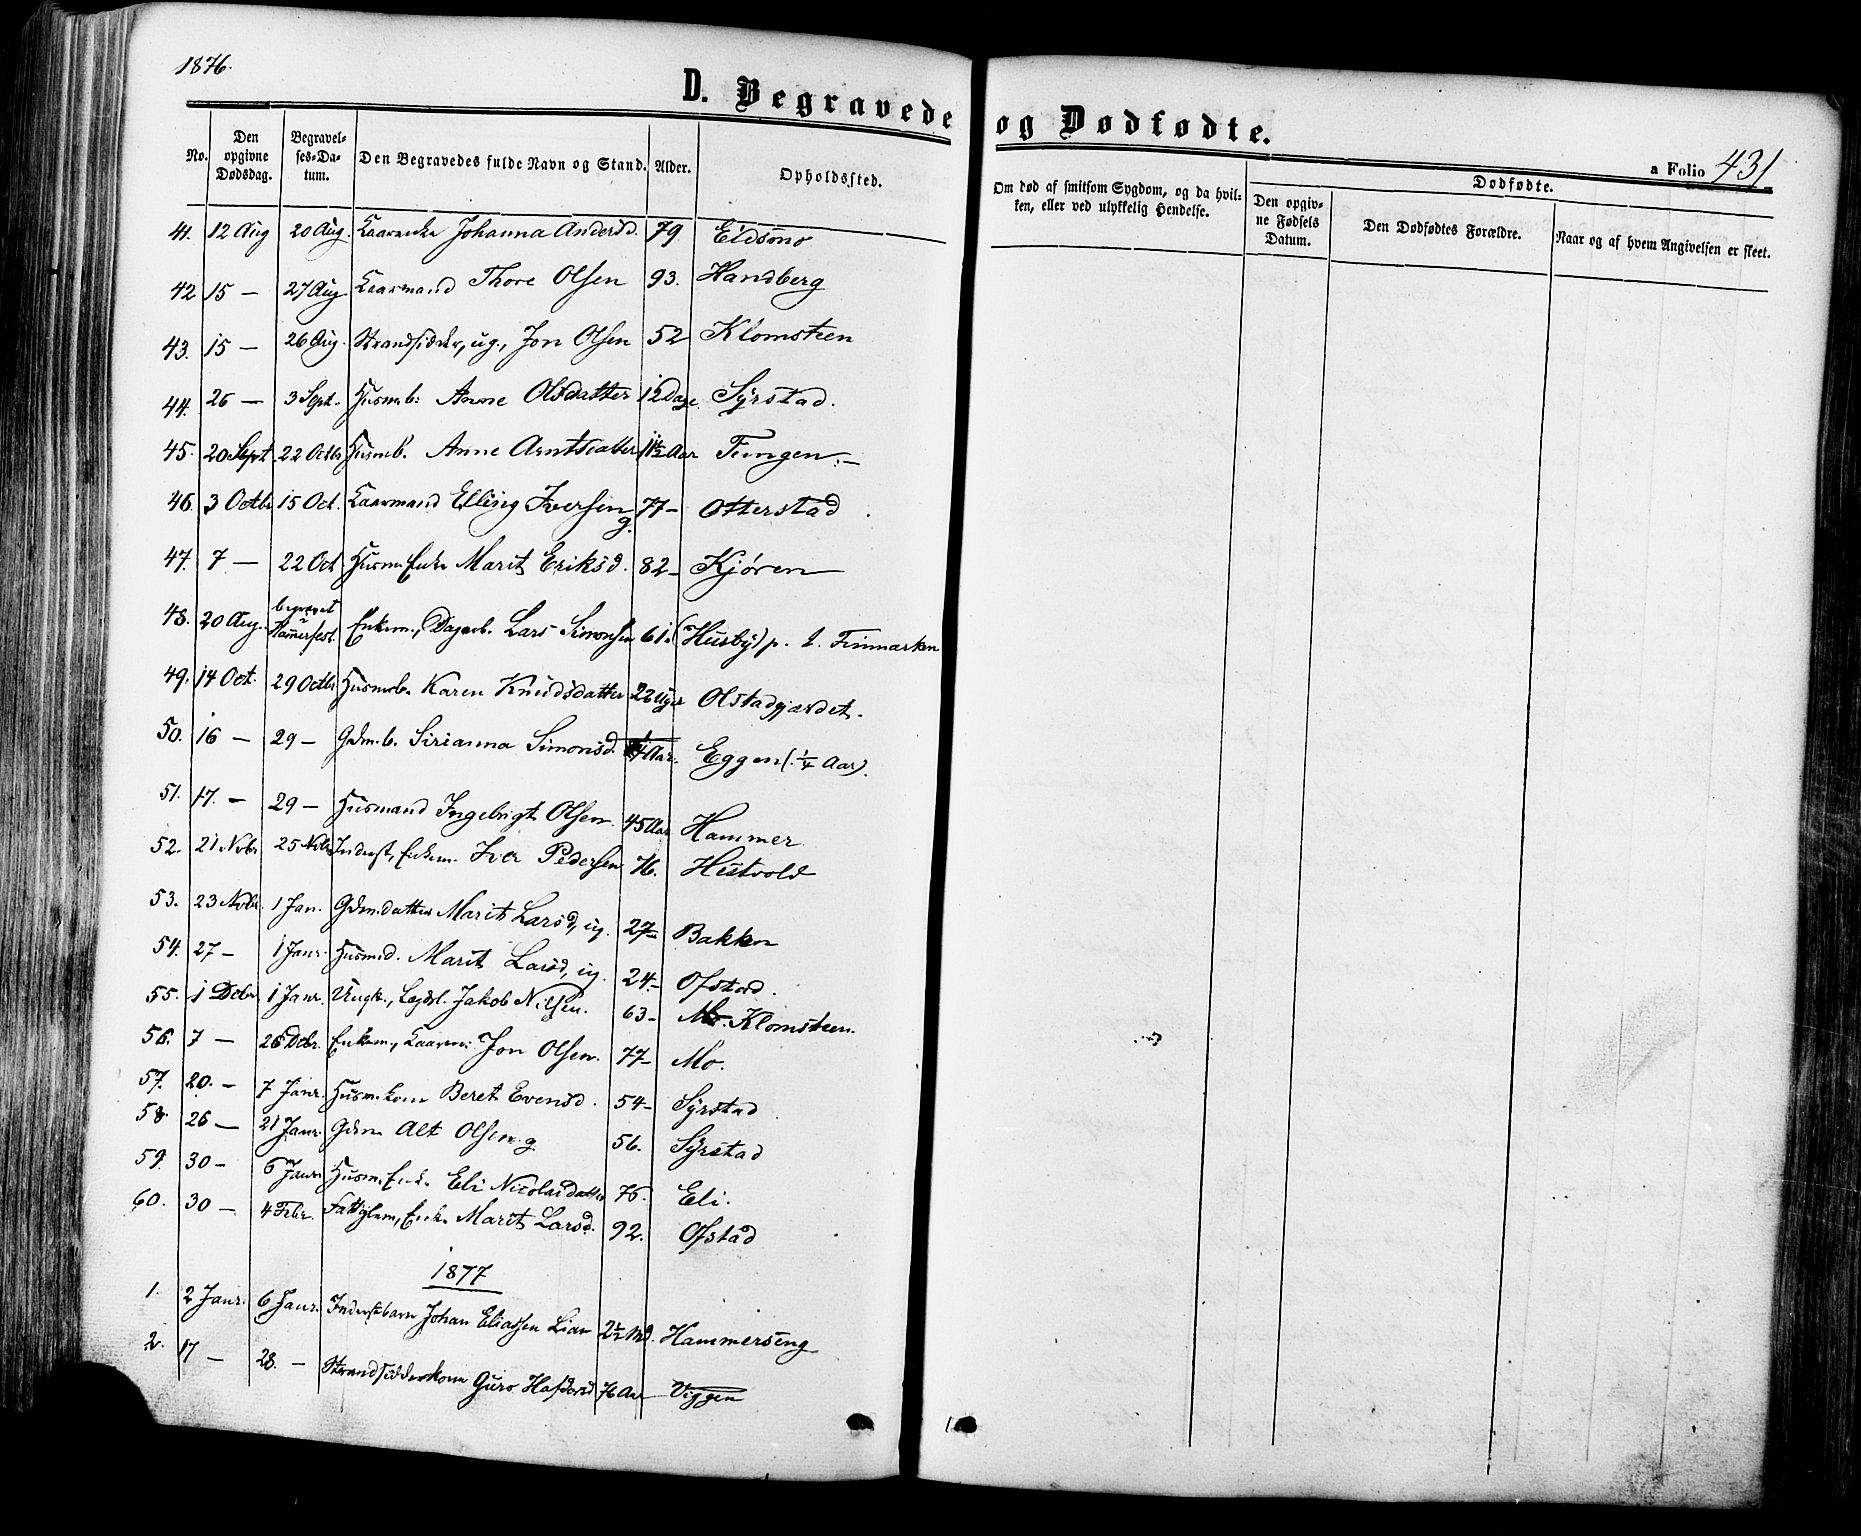 1876.
D. Begravede og Dødfødte.
a Folio 431
No. Den opgivne Dødsdag. Begravelses-Datum. Den Begravedes fulde Navn og Stand. Alder. Opholdssted. Om død af smitsom Sygdom, og da hvilken, eller ved ulykkelig Hendelse. Dødfødte. Den opgivne Fødsels Datum. Den Dødfødtes Forældre. Naar og af hvem Angivelsen er skeet.
41. 12 Aug 20 Aug. Kaarenke Johanna Andersd. 79 Eidsmo
42 15 — 27 Aug Kaarmand Thore Olsen 93. Handberg
43. 15 — 26 Aug. Strandsidder, ug., Jon Olsen 52 Klomsteen
44. 26 — 3 Sept. Husmb. Anne Olsdatter 12 Dage Syrstad.
45. 20 Sept. 22 Octbr Husmb. Anne Arntsdatter 11½ Aar Tungen.—
46. 3 Octbr 15 Oct. Kaarmand Elling Iversen g. 77— Otterstad
47. 7 — 22 Oct Husm. Enke Marit Eriksd. 82— Kjøren
48. 20 Aug. begravet i Hammerfest. Enkem., Dagarb. Lars Simonsen 61. (Husby) p. t. Finmarken
49. 14 Oct. 29 Octbr Husmb. Karen Knudsdatter 22 Uger Olstadgjærdet.
50. 16 — 29 — Gdm. b. Sirianna Simonsd. ¼ Aar. Eggen (: ¼ Aar).
51. 17. — 29 — Husmand Ingebrigt Olsen 45 Aar Hammer
52. 21 Novbr 25 Novbr Inderst, Enkem. Iver Pedersen 76. Hestvold
53. 23 Novbr. 1 Jan. Gdm.datter Marit Larsd, ug. 27— Bakken
54. 27 — 1 Janr. Husmd. Marit Larsd, ug. 24.— Ofstad.
55. 1 Decbr 1 Janr. Ungk., Lægdsl. Jakob Nilsen. 63— Klomsteen.
56. 7 — 26 Decbr. Enkem., Kaarm. Jon Olsen. 77— Mo.
57. 20. — 7 Janr. Husm. kone Beret Evensd. 54— Syrstad
58 26 — 21 Janr. Gdm Alt Olsen. g 56. Syrstad
59. 30 — 6 Janr Husm. Enke Eli Nicolaidatter 76. Eli.
60. 30 — 4 Febr. Fattiglem, Enke Marit Larsd. 92. Ofstad
1877
1. 2 Janr. 6 Janr. Inderstbarn Johan Eliassen Lian 2½ Md. Hammerseng
2. 17 — 28. — Strandsidderkone Guro Hafdorsd 76 Aar Viggen